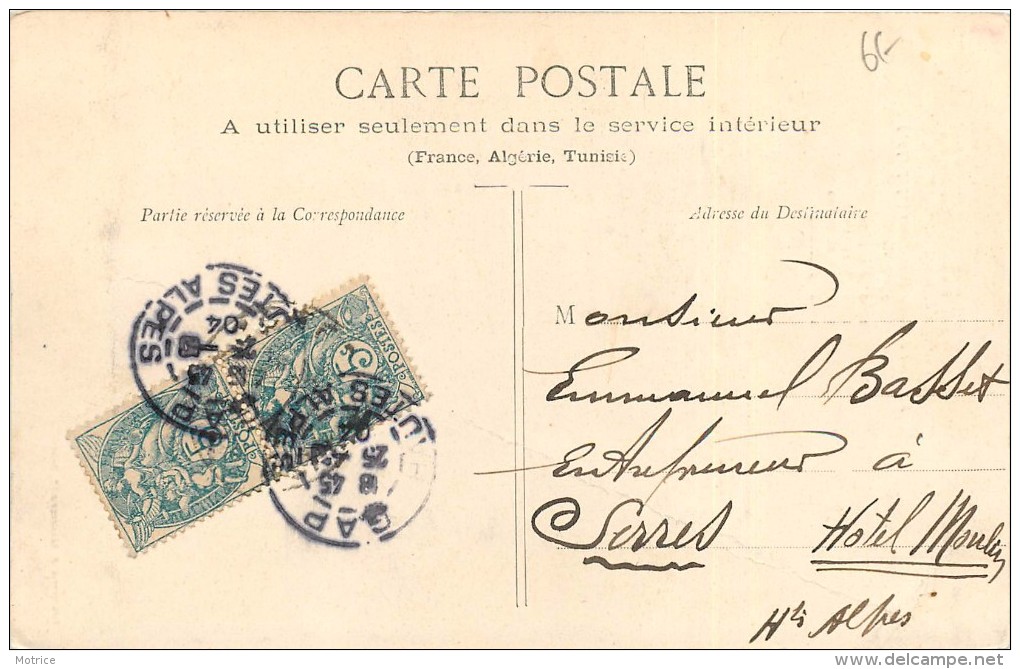 65-
CARTE POSTALE
A utiliser seulement dans le service intérieur
(France, Algérie, Tunisie)
Partie réservée à la Correspondance
Adresse du Destinataire
HTES ALPES
04
5
POSTES
GAP
Monsieur
Emmanuel Basset
Entrepreneur à
Serres Hôtel Moulin
Htes Alpes
Motrice
delcampe.net